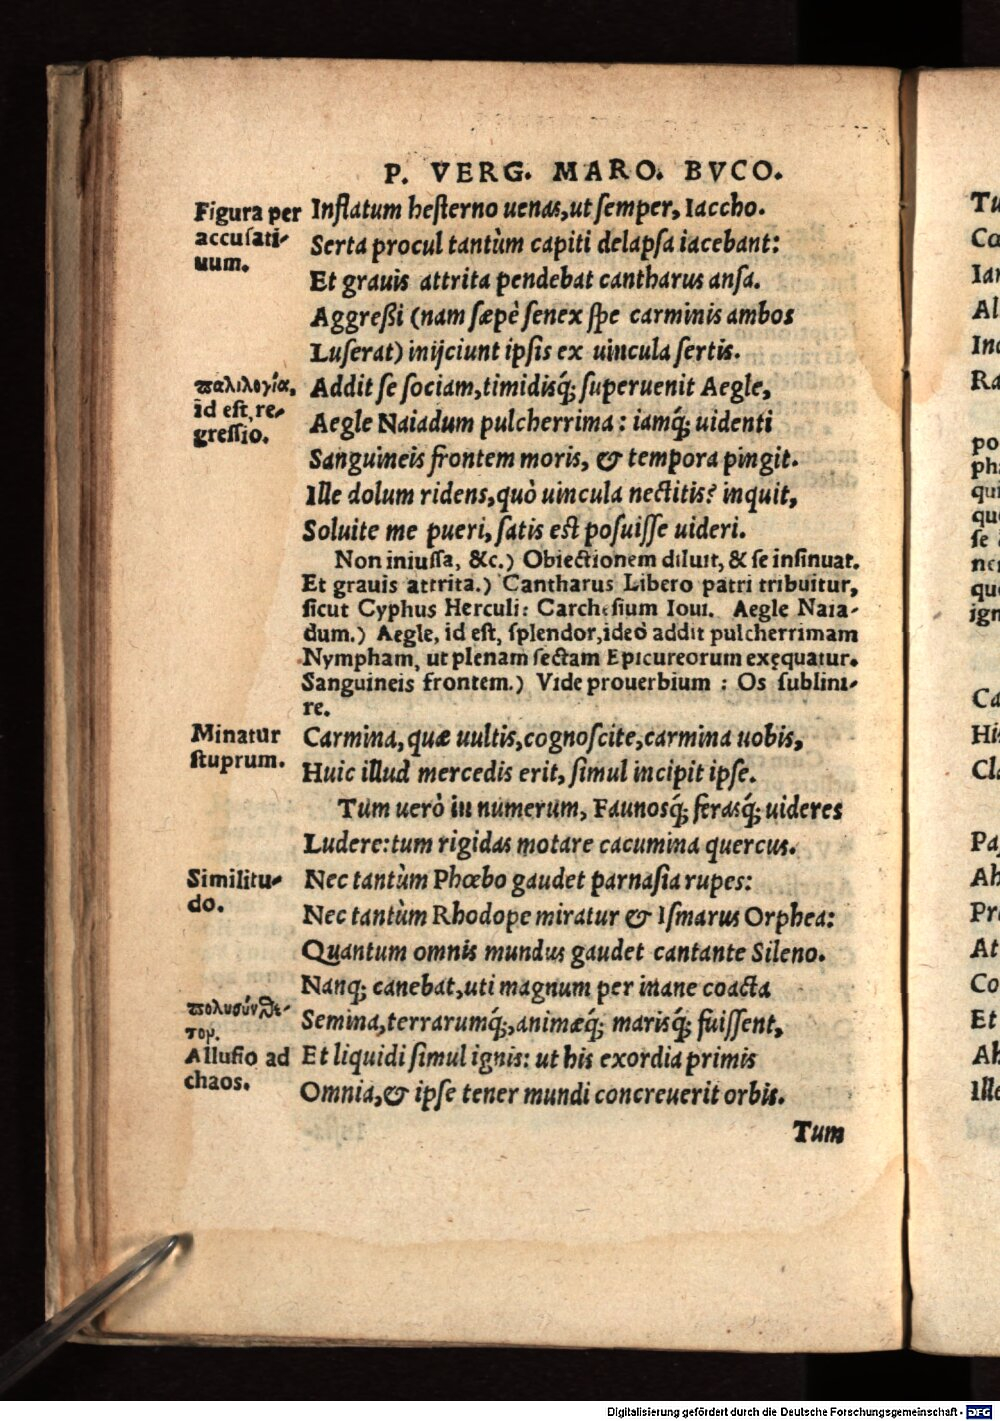 P. VERG. MARO. BVCO.
Figura per
accusati-
uum.
Inflatum hesterno uenas, ut semper, Iaccho.
Serta procul tantùm capiti delapsa iacebant:
Et grauis attrita pendebat cantharus ansa.
Aggreßi (nam sæpè senex spe carminis ambos
Luserat) inijciunt ipsis ex uincula sertis.
παλιλογία,
id est, re-
gressio.
Addit se sociam, timidisq́; superuenit Aegle,
Aegle Naiadum pulcherrima: iamq́; uidenti
Sanguineis frontem moris, & tempora pingit.
Ille dolum ridens, quò uincula nectitis? inquit,
Soluite me pueri, satis est posuisse uideri.
Non iniussa, &c.) Obiectionem diluit, & se insinuat.
Et grauis attrita.) Cantharus Libero patri tribuitur,
sicut Cyphus Herculi: Carchesium Ioui. Aegle Naia-
dum.) Aegle, id est, splendor, ideo addit pulcherrimam
Nympham, ut plenam sectam Epicureorum exęquatur.
Sanguineis frontem.) Vide prouerbium : Os sublini-
re.
Minatur
stuprum.
Carmina, quæ uultis, cognoscite, carmina uobis,
Huic illud mercedis erit, simul incipit ipse.
Tum uerò in numerum, Faunosq́; ferasq́; uideres
Ludere: tum rigidas motare cacumina quercus.
Similitu-
do.
Nec tantùm Phœbo gaudet parnasia rupes:
Nec tantùm Rhodope miratur & Ismarus Orphea:
Quantum omnis mundus gaudet cantante Sileno.
Nanq; canebat, uti magnum per inane coacta
πολυσύνθε-
τον.
Semina, terrarumq́;, animæq́; marisq́; fuissent,
Allusio ad
chaos.
Et liquidi simul ignis: ut his exordia primis
Omnia, & ipse tener mundi concreuerit orbis.
Tum
Tu
Cœ
Ian
Al
Inc
Ra
po
ph
qui
que
se
ner
que
ign
Ca
His
Cla
Pa
Ah
Pro
At
Co
Et
Ah
Ille
Digitalisierung gefördert durch die Deutsche Forschungsgemeinschaft - DFG